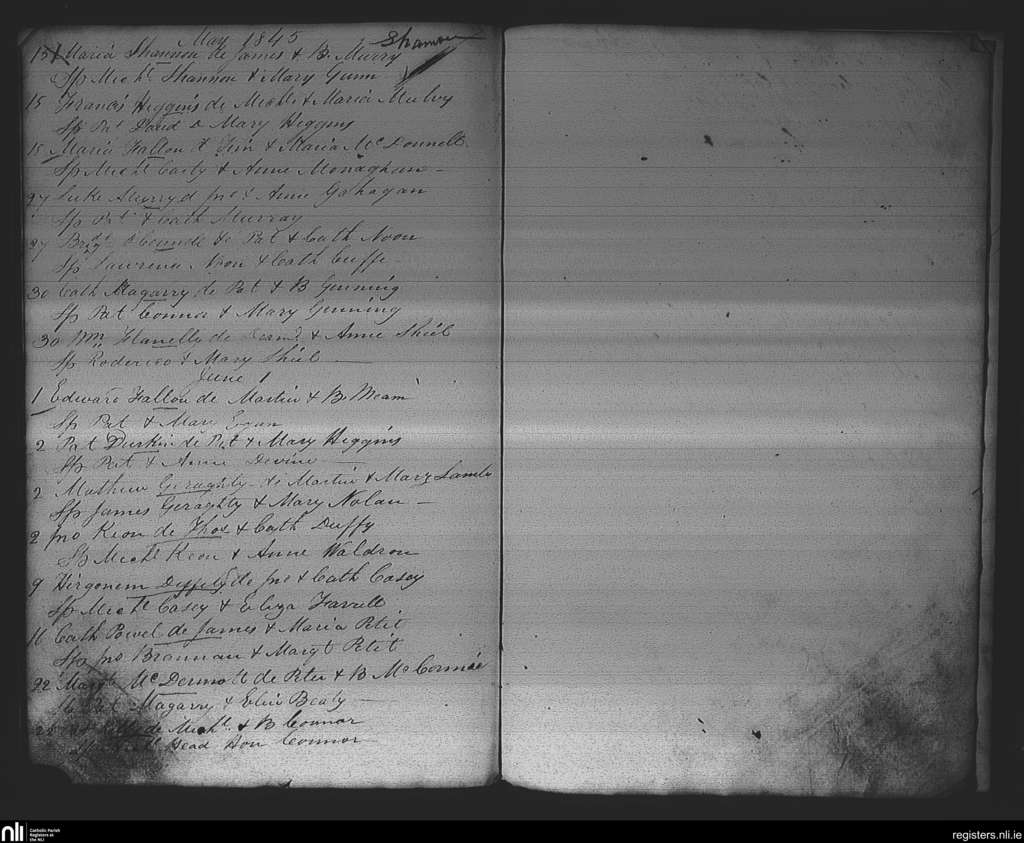 May 1845
Shannon
15 Maria Shannon de James & B. Murry
Sp Michl. Shannon & Mary Gunn
15 Francis Higgins de Michl & Maria Mulvy
Sp Pat David & Mary Higgins
18 Maria Fallon d Tim & Maria McDonnell
Sp Michl Carty & Anne Monaghan
27 Luke Murry d Jno & Anne Gahagan
Sp Pat & Cath Murray
27 Bridt de Pat & Cath Noon
Sp Lawrence Noon & Cath Cuffe
30 Cath Magarry de Pat & B Genning
Sp Pat Connor & Mary Genning
30 Wm Flanelly de & Anne Shiel
Sp Roderico & Mary Shiel
June 1
1 Edward Fallon de Martin & B. Meam
Sp Pat & Mary Egan
2 Pat Durkin de Pat & Mary Higgins
Sp Pat & Anne Devine
2 Mathew Geraghty de Martin & Mary Lambe
Sp James Geraghty & Mary Nolan
2 Jno Keon de Thos & Cath Duffy
Sp Michl Keon & Anne Waldron
9 Deffely de Jno & Cath Casey
Sp Michl Casey & Eliza Farrell
16 Cath Powel de James & Maria Petit
Sp Jno Brannan & Margt Petit
22 Margt McDermott de Peter & B McCormic
Pat Magarry & Elin Beaty
de Michl. & B Connor
Head Hon Connor
nli
Catholic Parish
Registers at
the NLI
registers.nli.ie